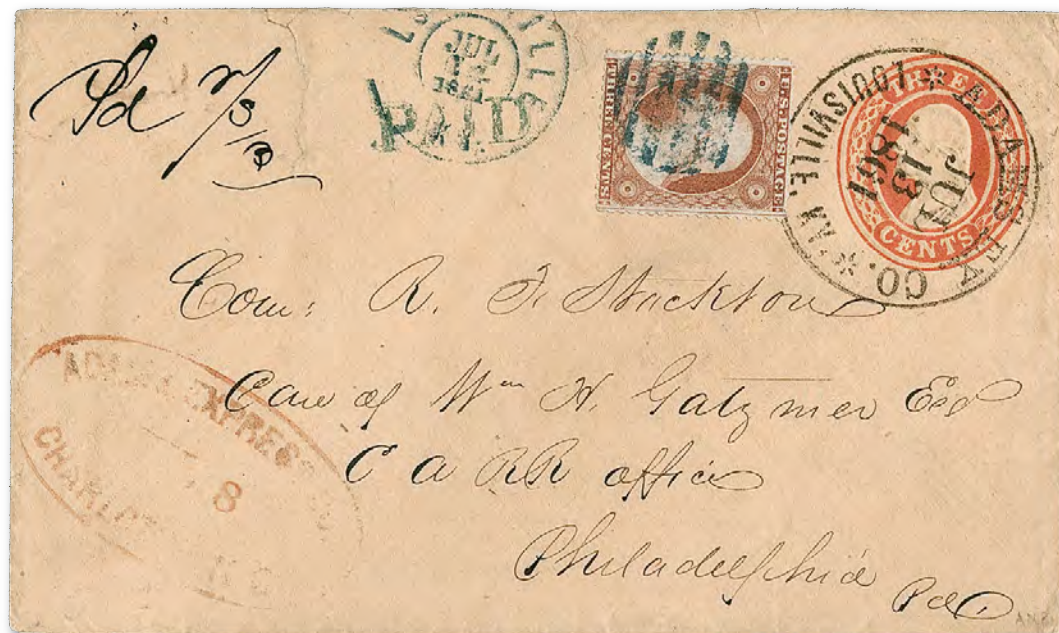 Pd
LOUISVILLE
JUL
1861
PAID
THREE CENTS
U.S. POSTAGE
THREE
CENTS
ADAMS EX CO. * LOUISVILLE, KY *
JUL
13
1861
Com: R. F. Stockton
Care of Wm H. Gatzmer Esq
C a RR office
Philadelphia
Pa
ADAMS EXPRESS CO
8
CHARLOTTE N.C.